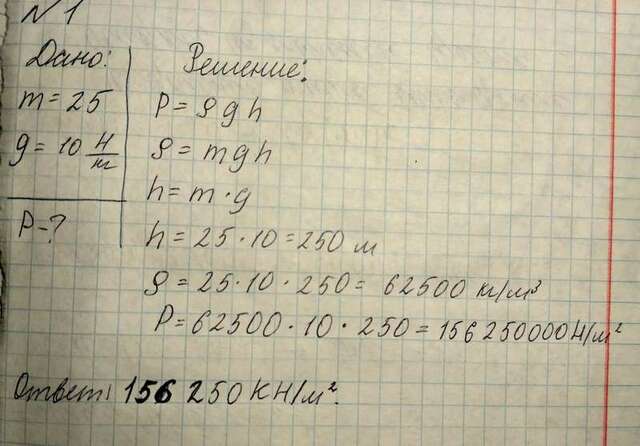 № 1
Дано:
m = 25
g = 10 Н/кг
P - ?
Решение:
P = ρ g h
ρ = m g h
h = m · g
h = 25 · 10 = 250 м
ρ = 25 · 10 · 250 = 62500 кг/м³
P = 62500 · 10 · 250 = 156250000 Н/м²
Ответ: 156 250 КН/м².